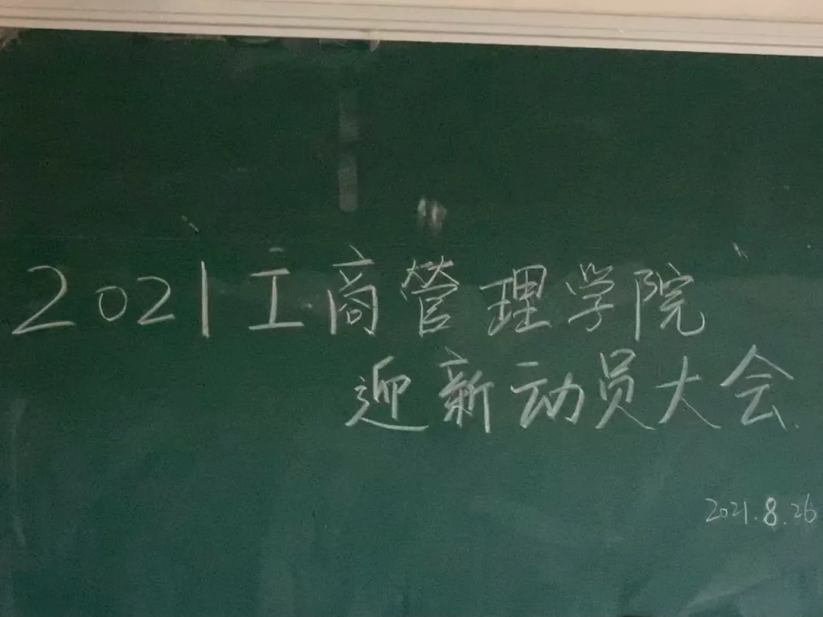 2021工商管理学院
迎新动员大会
2021.8.26